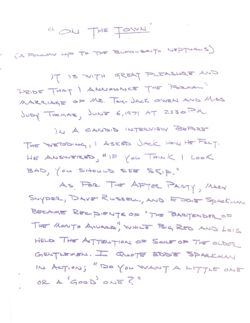 "ON THE TOWN"
(A FOLLOW UP TO THE NUPTUALS)
IT IS WITH GREAT PLEASURE AND
PRIDE THAT I ANNOUNCE THE "FORMAL"
MARRIAGE OF MR. JACK OWEN AND MISS
JUDY THOMAS, JUNE 6, 1971 AT 2:30 PM.
IN A CANDID INTERVIEW BEFORE
THE WEDDING, I ASKED JACK HOW HE FELT.
HE ANSWERED, "IF YOU THINK I LOOK
BAD, YOU SHOULD SEE SKIP."
AS FOR THE AFTER PARTY, MARK
SNYDER, DAVE RUSSELL, AND EDDIE SPARKMAN
BECAME RECIPIENTS OF "THE BARTENDER OF
THE MONTH AWARD", WHILE BIG RED AND LOIS
HELD THE ATTENTION OF SOME OF THE OLDER
GENTLEMEN. I QUOTE EDDIE SPARKMAN
IN ACTION; "DO YOU WANT A LITTLE ONE
OR A 'GOOD' ONE?"